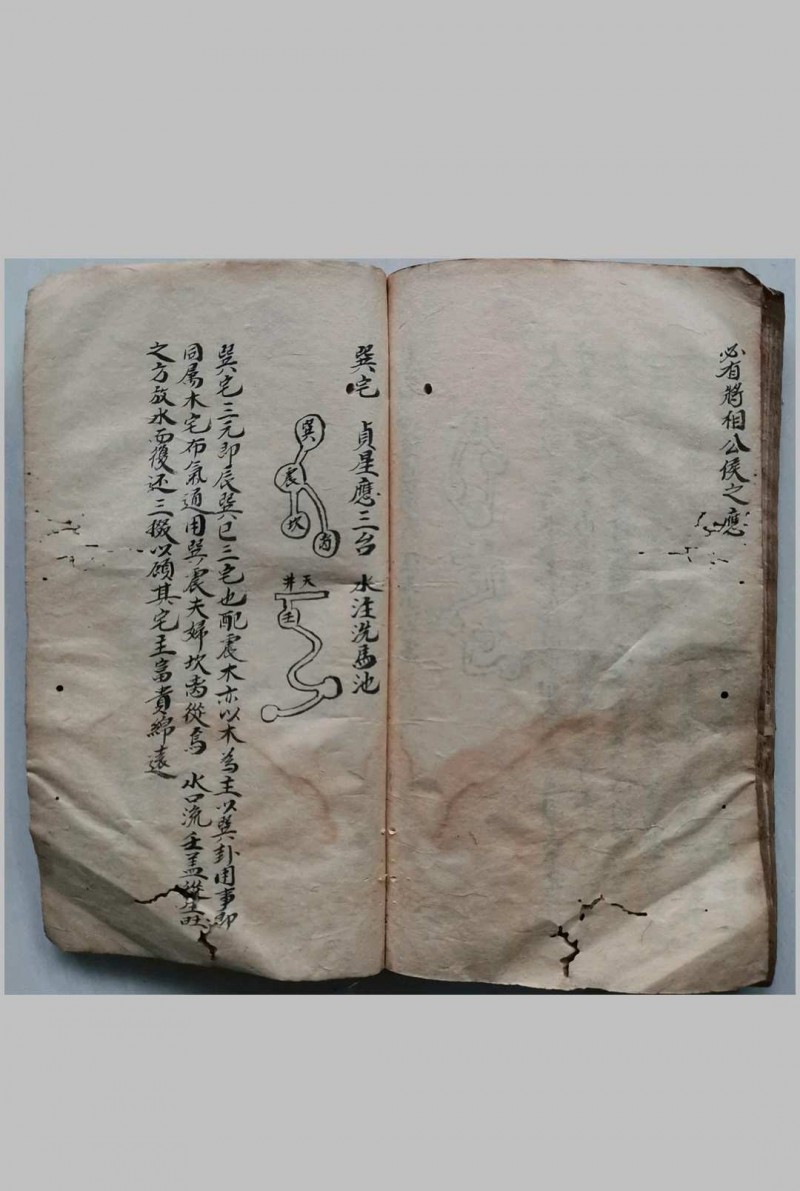 必有將相公侯之應
巽宅 貞星應三台 水注洗馬池
巽
震
坎
离
天井
壬
巽宅三元即辰巽巳三宅也配震木亦以木為主以巽卦用事即
同屬木宅布氣通用巽震夫婦坎离從焉 水口流壬盖從生旺
之方放水而復还三掇以顧其宅主富貴綿遠